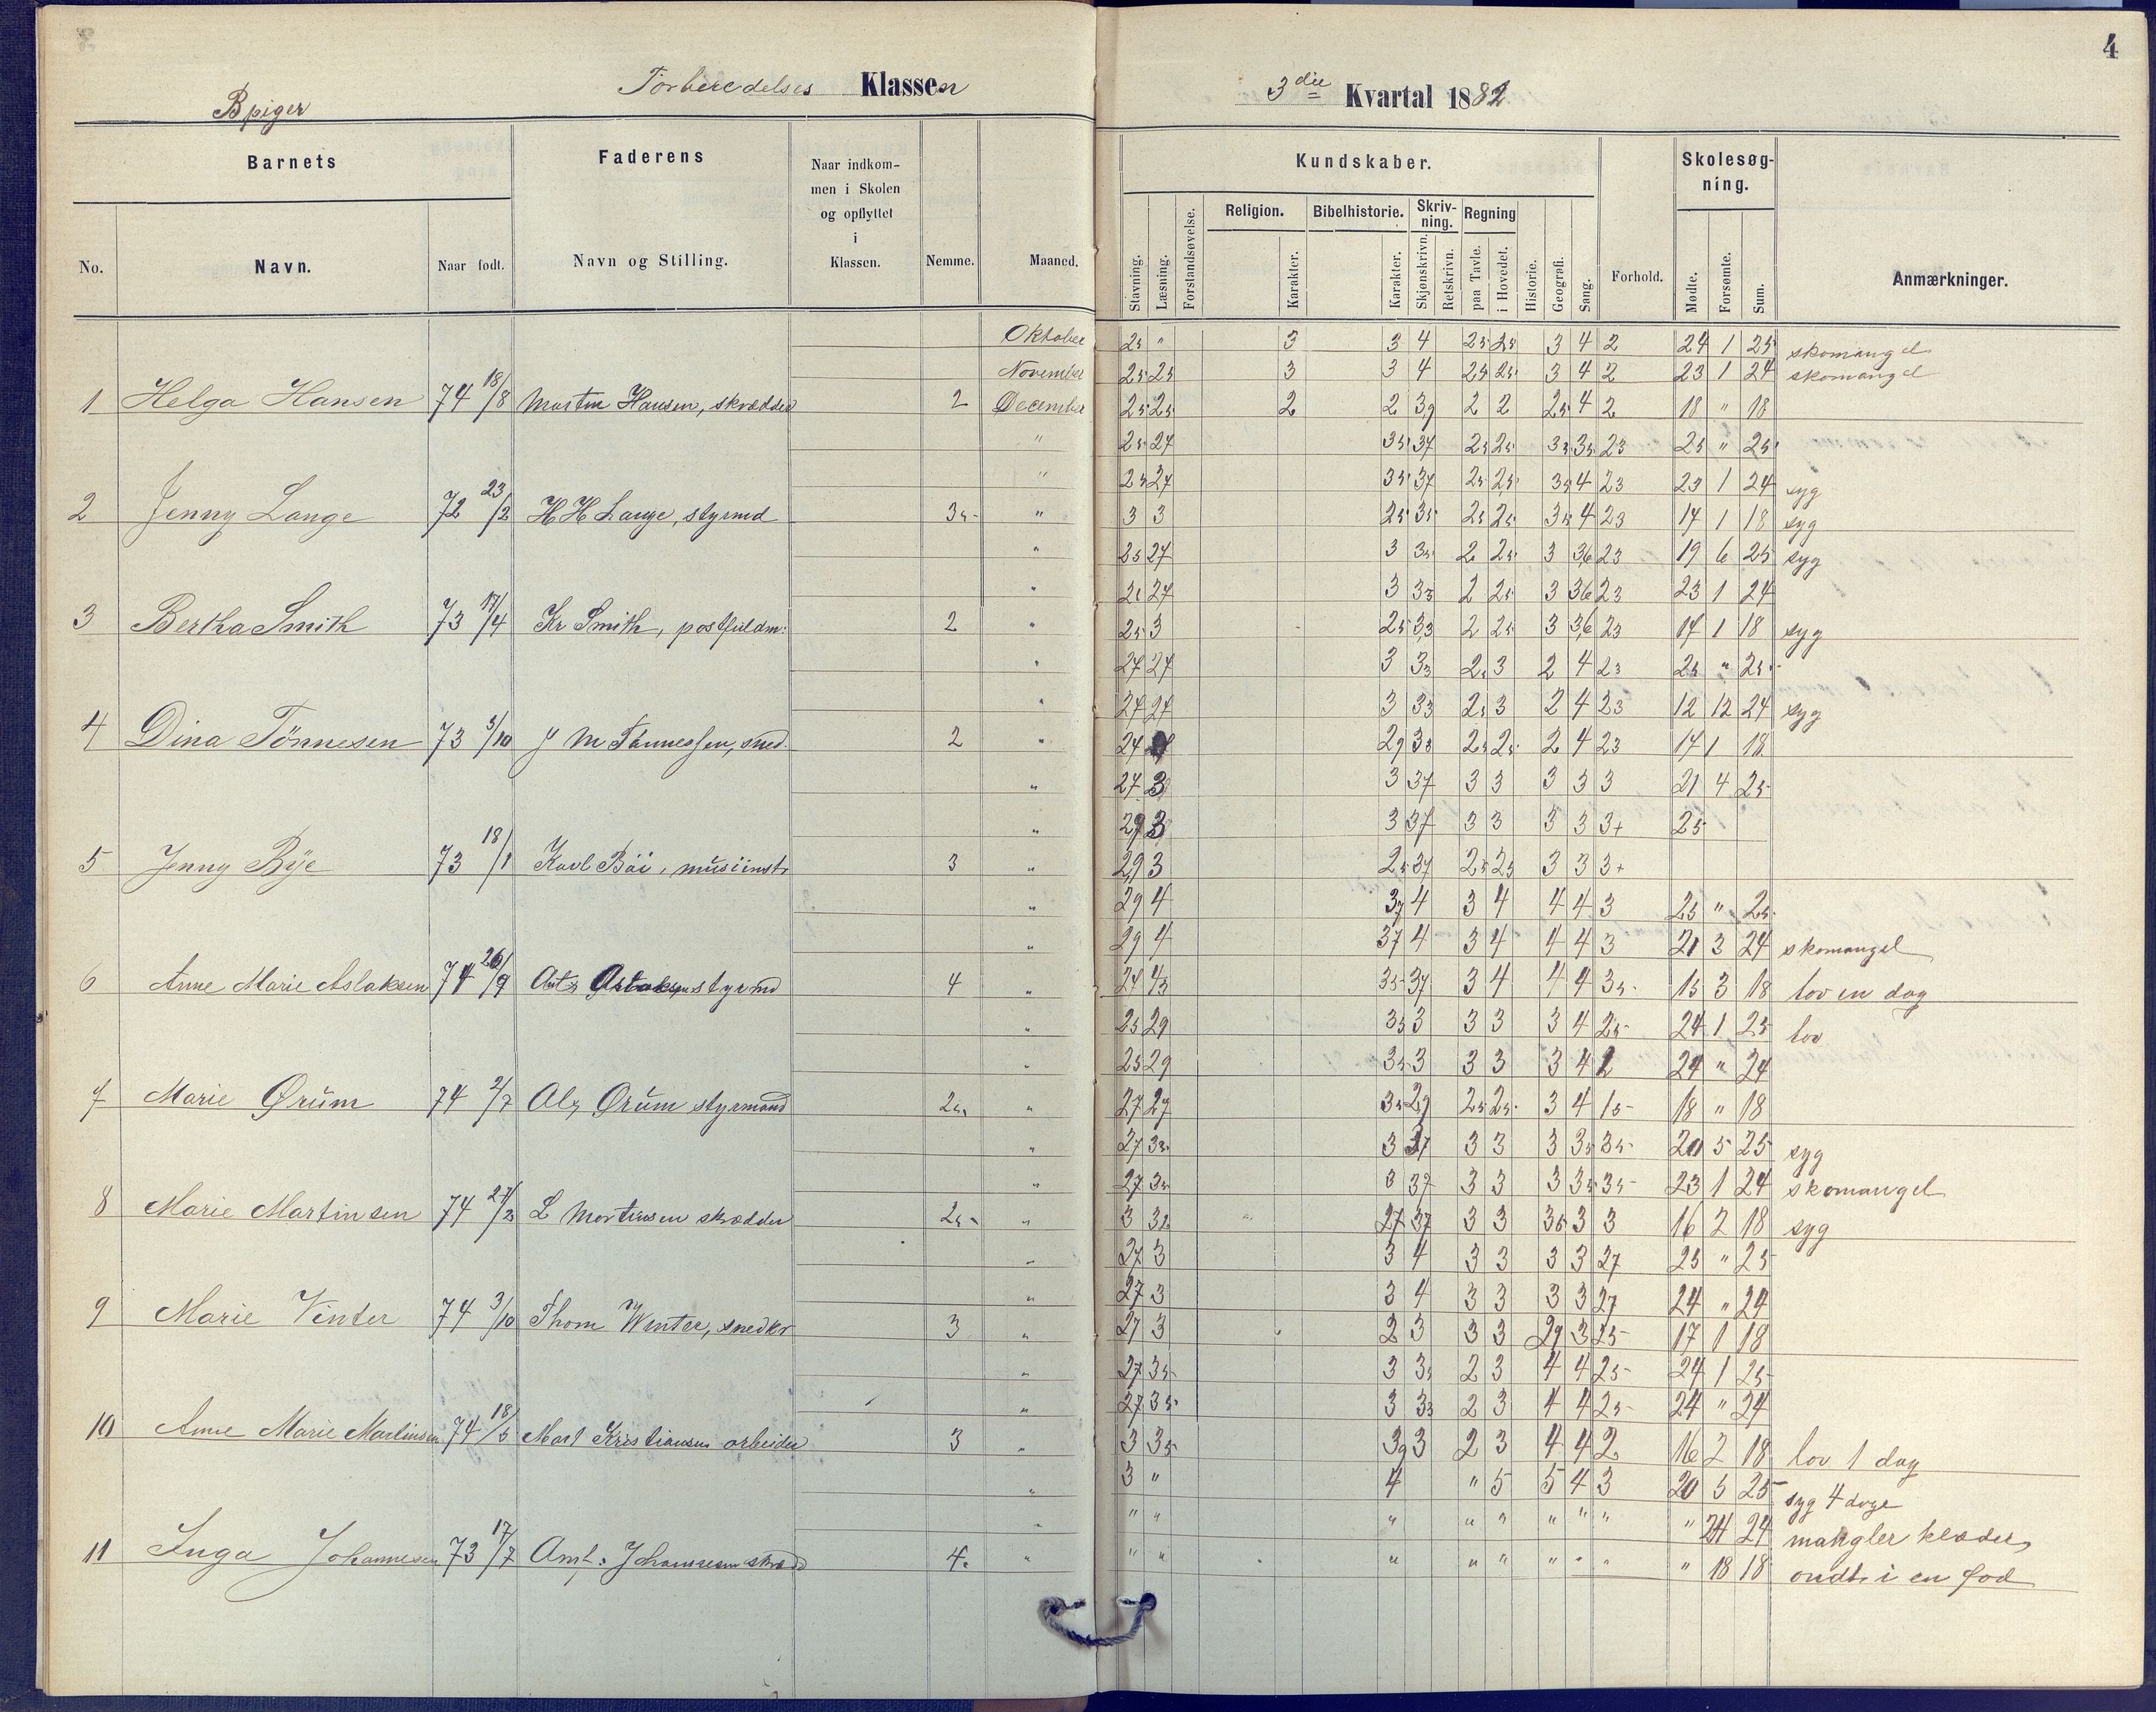 4
B piger
Forberedelses Klassen
3die Kvartal 1882
Barnets
Faderens
Naar indkom-
men i Skolen
og opflyttet
i
Klassen.
Kundskaber.
Skolesøg-
ning.
No.
Navn.
Naar født.
Navn og Stilling.
Nemme.
Maaned.
Stavning.
Læsning.
Forstandsøvelse.
Religion.
Karakter.
Bibelhistorie.
Karakter.
Skriv-
ning.
Skjønskrivn.
Retskrivn.
Regning
paa Tavle.
i Hovedet.
Historie.
Geografi.
Sang.
Forhold.
Mødte.
Forsømte.
Sum.
Anmærkninger.
Oktober 25 " 3 3 4 25 25 3 4 2 24 1 25 skomangel
November 25 25 3 3 4 25 25 3 4 2 23 1 24 skomangel
1 Helga Hansen 74 18/8 Martin Hansen, skrædder 2 December 25 25 2 2 3,9 2 2 25 4 2 18 " 18
" 25 27 35 37 25 25 35 35 23 25 " 25
" 25 27 35 37 25 25 35 4 23 23 1 24 syg
2 Jenny Lange 72 23/2 H H Lange, styrmd 35 " 3 3 25 35 25 25 35 4 23 17 1 18 syg
" 25 27 3 35 2 25 3 36 23 19 6 25 syg
" 25 27 3 33 2 25 3 36 23 23 1 24
3 Bertha Smith 73 17/4 Kr Smith, postfuldm: 2 " 25 3 25 3,3 2 25 3 3,6 23 17 1 18 syg
" 27 27 3 33 25 3 2 4 23 25 " 25
" 27 27 3 33 25 3 2 4 23 12 12 24 syg
4 Dina Tönnesen 73 5/10 J M Tønnessen, sned. 2 " 27 29 33 25 25 2 4 23 17 1 18
" 27 3 3 37 3 3 3 3 3 21 4 25
" 29 3 3 37 3 3 3 3 3+ 25
5 Jenny Bye 73 18/1 Karl Böi, musiinstr 3 " 29 3 25 37 25 25 3 3 3+
" 29 4 37 4 3 4 4 4 3 25 " 25
" 29 4 37 4 3 4 4 4 3 21 3 24 skomangel
6 Anne Marie Aslaksen 74 26/9 Ant. Aslaksen styrmd 4 " 27 43 35 37 3 4 4 4 35 15 3 18 lov en dag
" 25 29 35 3 3 3 3 4 25 24 1 25 lov
" 25 29 35 3 3 3 3 4 2 24 " 24
7 Marie Ørum 74 2/7 Alx Ørum styrmand 25 " 27 27 35 29 25 25 3 4 15 18 " 18
" 27 35 3 37 3 3 3 35 35 20 5 25 syg
" 27 35 3 37 3 3 3 35 35 23 1 24 skomangel
8 Marie Martinsen 74 27/2 L Martinsen skrædder 25 " 3 32 27 37 3 3 36 3 3 16 2 18 syg
" 27 3 3 4 3 3 3 3 27 25 " 25
" 27 3 3 4 3 3 3 3 27 24 " 24
9 Marie Vinter 74 3/10 Thom Winter, snedkr 3 " 27 3 2 3 3 3 29 3 25 17 1 18
" 27 35 3 35 2 3 4 4 25 24 1 25
" 27 35 3 33 2 3 4 4 25 24 " 24
10 Anne Marie Martinsen 74 18/5 Mart Kristiansen arbeider 3 " 3 35 39 3 2 3 4 4 2 16 2 18 lov 1 dag
" 3 " 4 " 5 5 4 3 20 5 25 syg 4 dage
" " " " " " " " " " 24 24 mangler klæder
11 Inga Johannesen 73 17/7 Ant: Johannesen skræd 4. " " " " " " " " " " 18 18 ondt i en fod